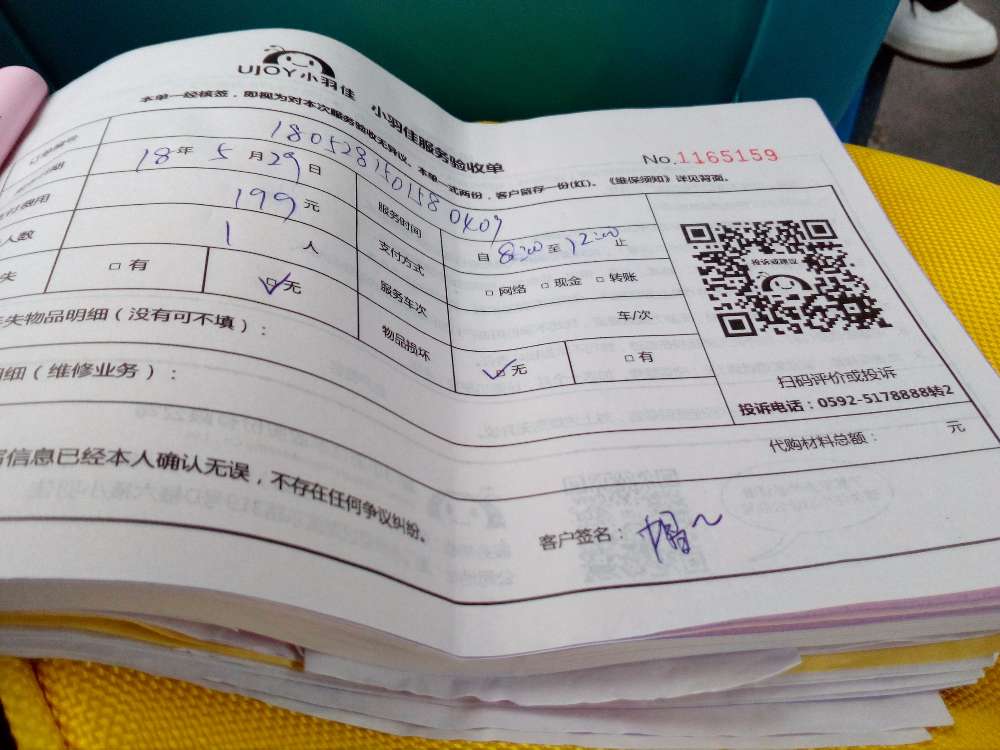 UJOY小羽佳 小羽佳服务验收单
本单一经核签，即视为对本次服务验收无异议。本单一式两份，客户留存一份(红)。《维保须知》详见背面。
No.1165159
订单编号 180528150158 0409
18年 5月29日 服务时间 自 8:00 至 12:00 止
费用 199 元 支付方式 □ 网络 □ 现金 □ 转账
人数 1 人 服务车次 车/次
失 □ 有 □ 无 物品损坏 □ 无 □ 有
失物品明细（没有可不填）：
投诉或建议
扫码评价或投诉
投诉电话：0592-5178888转2
细（维修业务）：
代购材料总额： 元
信息已经本人确认无误，不存在任何争议纠纷。
客户签名：